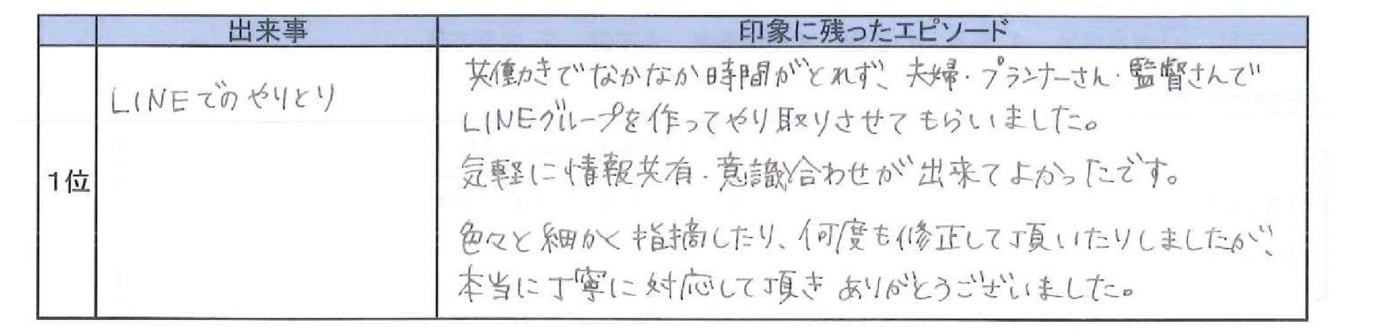 出来事 印象に残ったエピソード
1位
LINEでのやりとり
共働きでなかなか時間がとれず、夫婦・プランナーさん・監督さんで
LINEグループを作ってやり取りさせてもらいました。
気軽に情報共有・意識合わせが出来てよかったです。
色々と細かく指摘したり、何度も修正して頂いたりしましたが、
本当に丁寧に対応して頂きありがとうございました。